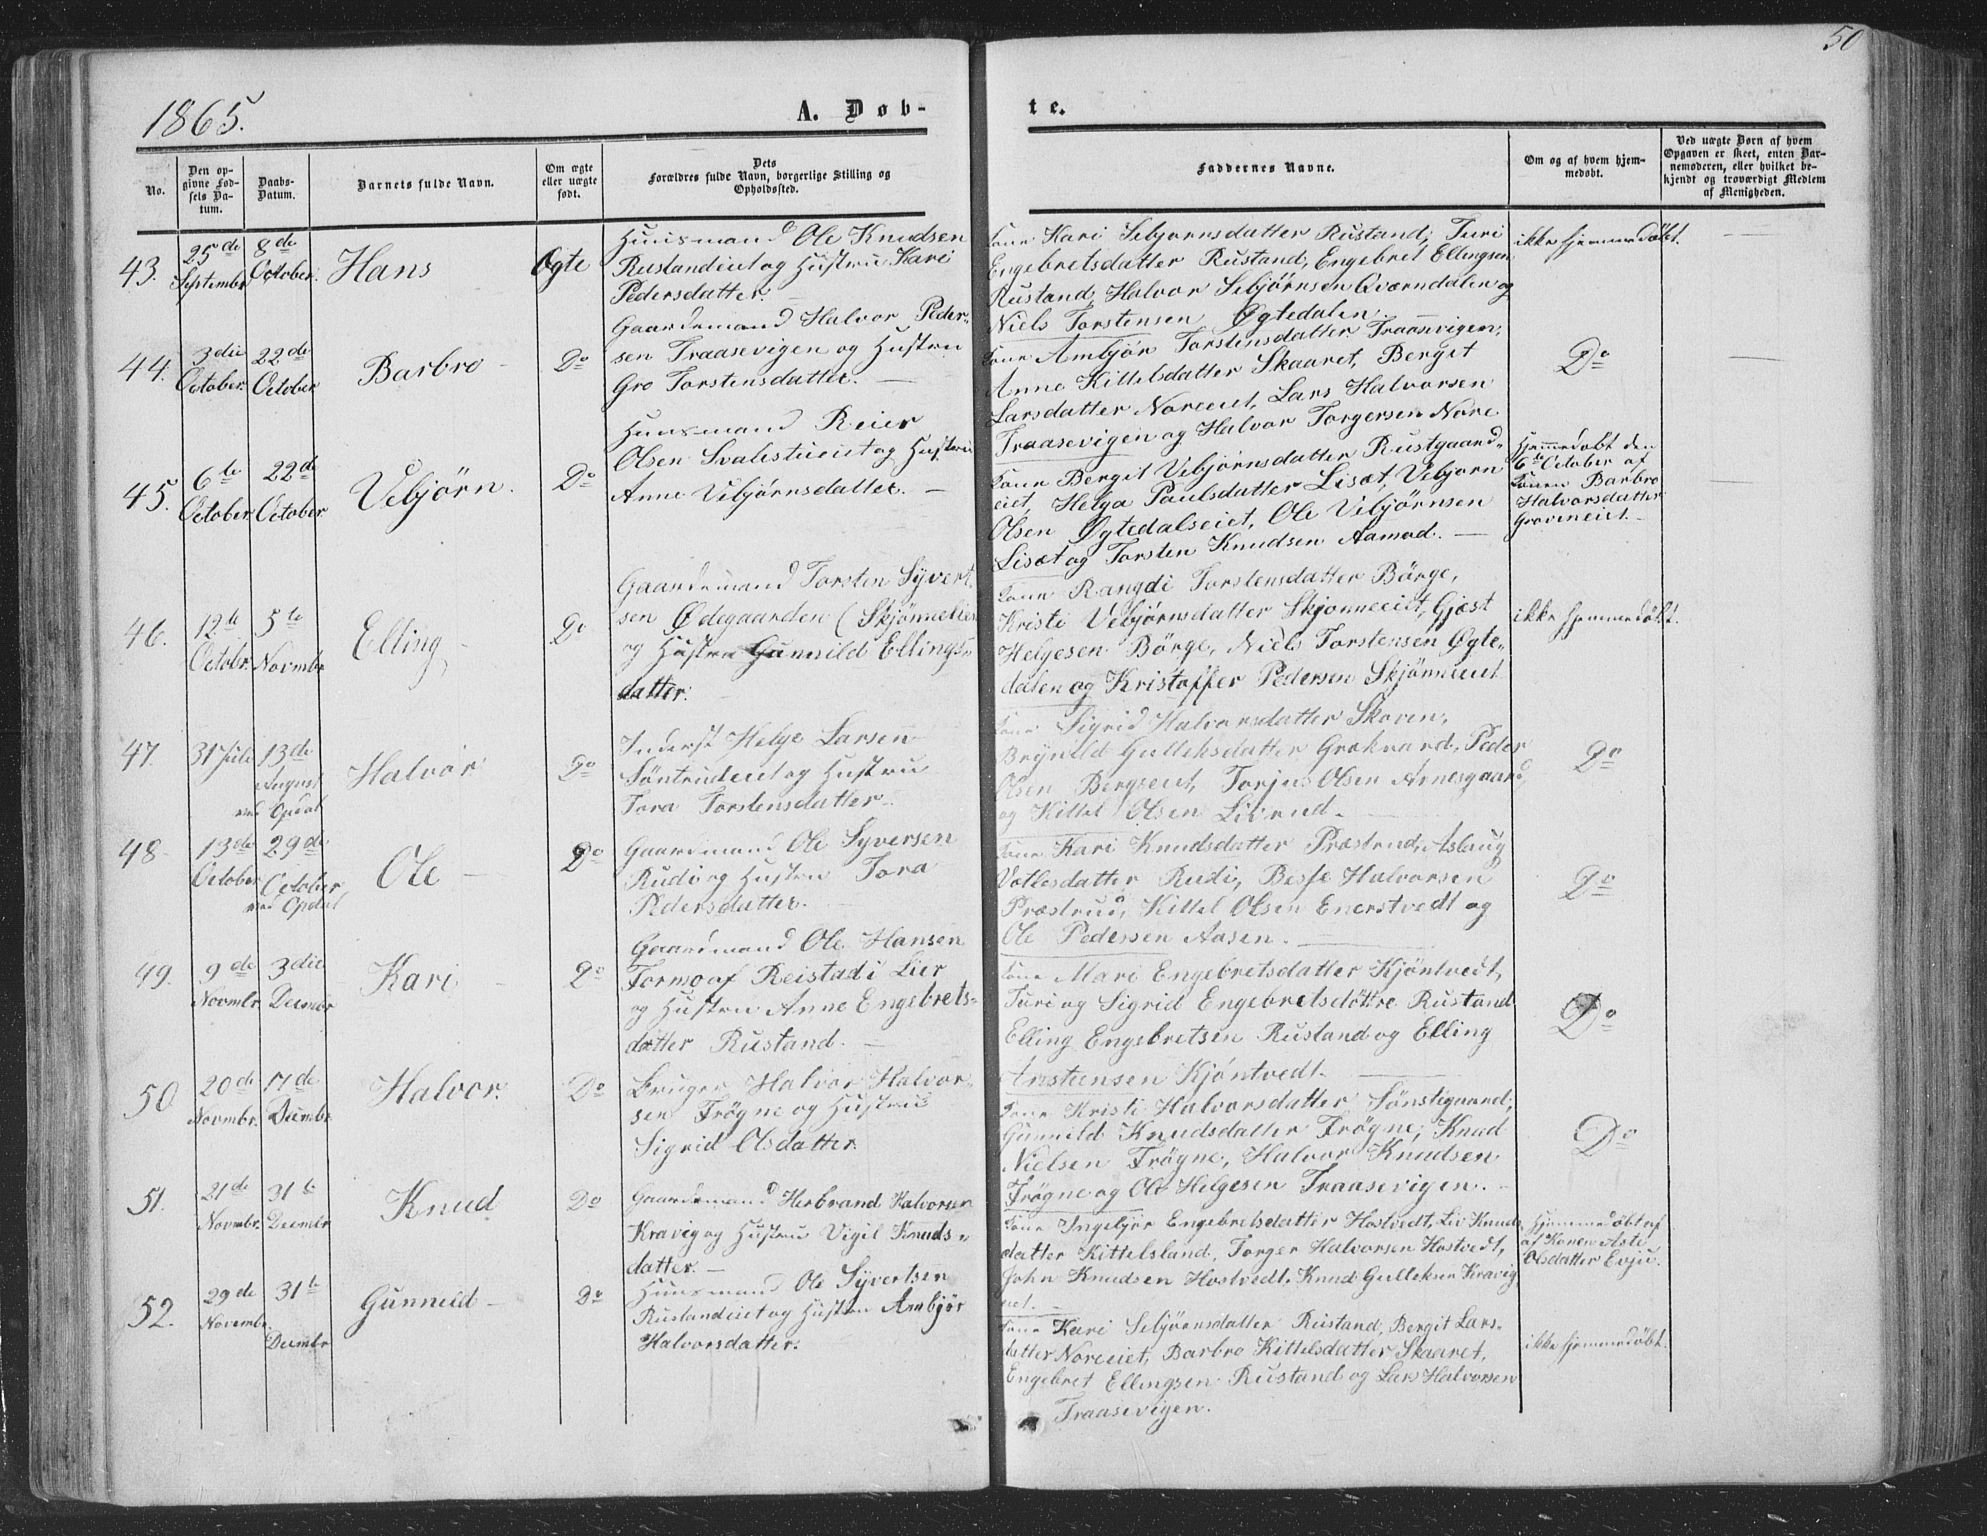 50
1865.
A. Døb-
te.
No.
Den op-
givne Fød-
sels Da-
tum.
Daabs-
Datum.
Barnets fulde Navn.
Om ægte
eller uægte
født.
Dets
Forældres fulde Navn, borgerlige Stilling og
Opholdssted.
Faddernes Navne.
Om og af hvem hjem-
medøbt.
Ved uægte Børn af hvem
Opgaven er skeet, enten Bar-
nemoderen, eller hvilket be-
kjendt og troværdigt Medlem
af Menigheden.
43.
25de
September
8de
October.
Hans
Ogte
Huusmand Ole Knudsen
Rustandeiet og Hustru Kari
Pedersdatter. —
Kone Kari Sebjørnsdatter Rustand, Turi
Engebretsdatter Rustand, Engebret Ellingsen
Rustand, Halvor Sebjørnsen Qværndalen og
Niels Torstensen Øgtedalen.
ikke hjemmedøbt.
44.
3die
October.
22de
October
Barbro
Do
Gaardemand Halvor Peder-
sen Traasevigen og Hustru
Gro Torstensdatter. —
Kone Ambjør Torstensdatter Traasevigen,
Anne Kittelsdatter Skaaret, Bergit
Larsdatter Noreeiet, Lars Halvorsen
Traasevigen og Halvor Torgersen Nore
Do
45.
6te
October
22de
October
Vebjørn.
Do
Huusmand Reier
Olsen Svalestueiet og Hustru
Anne Vebjørnsdatter. —
Kone Bergit Vebjørnsdatter Rustgaard-
eiet, Helga Paulsdatter Lisæt, Vebjørn
Olsen Øgtedalseiet, Ole Vebjørnsen
Lisæt og Torsten Knudsen Aamod. —
Hjemmedøbt den
6te October af
Konen Barbro
Halvorsdatter
Graveneiet. —
46.
12te
Octobr.
5te
Novmbr
Elling
Do
Gaardemand Torsten Syvert
sen Ødegaarden (Skjønnelien
og Hustru Gunnild Ellings-
datter.
Kone Rangdi Torstensdatter Børge,
Kristi Vebjørnsdatter Skjønneeiet, Gjest
Helgesen Børge, Niels Torstensen Øgte-
dalen og Kristoffer Pedersen Skjønneeiet
ikke hjemmedøbt.
47.
31 Juli
13de
August
ved Opdal
Halvor
Do
Inderst Helge Larsen
Søntrudeiet og Hustru
Tora Torstensdatter.
Kone Sigrid Halvorsdatter Skoven,
Brynild Gulleksdatter Grøkvard, Peder
Olsen Bergseiet, Torjus Olsen Arnesgaard
og Kittel Olsen Livrud. —
Do
48
13de
October
29de
October
ved Opdal
Ole —
Do
Gaardmand Ole Syversen
Rudi og Hustru Tora
Pedersdatter. —
Kone Kari Knudsdatter Præstrud, Aslaug
Votlesdatter Rudi, Besse Halvorsen
Præstrud, Kittel Olsen Enerstvedt og
Ole Pedersen Aasen. —
Do
49.
9de
Novmbr.
3die
Decmbr
Kari —
Do
Gaardmand Ole Hansen
Tormo af Reistad i Lier
og Hustru Anne Engebrets-
datter Rustand. —
Kone Mari Engebretsdatter Kjøntvedt,
Turi og Sigrid Engebretsdøttre Rustand
Elling Engebretsen Rustand og Elling
Anstensen Kjøntvedt. —
Do
50
20de
Novmbr.
17de
Decmbr.
Halvor.
Do
Bruger Halvor Halvor-
sen Frøgne og Hustru
Sigrid Olsdatter.
Kone Kristi Halvorsdatter Sønstigaard,
Gunnild Knudsdatter Frøgne, Knud
Nielsen Frøgne, Halvor Knudsen
Frøgne og Ole Helgesen Traasevigen. —
Do
51.
21de
Novmbr.
31te
Decmbr
Knud
Do
Gaardemand Herbrand Halvorsen
Kravig og Hustru Vigil Knuds-
datter. —
Kone Ingebjør Engebretsdatter Hostvedt, Liv Knuds
datter Kittelsland, Torger Halvorsen Hostvedt,
John Knudsen Hostvedt, Knud Gulleksen Kravig
eiet. —
Hjemmedøbt af
af Konen Aste
Olsdatter Evju.
52.
29de
Novembr.
31te
Decmbr
Gunneld —
Do
Huusmand Ole Syvertsen
Rustandeiet og Hustru Ambjør
Halvorsdatter.
Kone Kari Sebjørnsdatter Rustand, Bergit Lars-
datter Noreeiet, Barbro Kittelsdatter Skaaret,
Engebret Ellingsen Rustand og Lars Halvorsen
Traasevigen.
ikke hjemmedøbt.